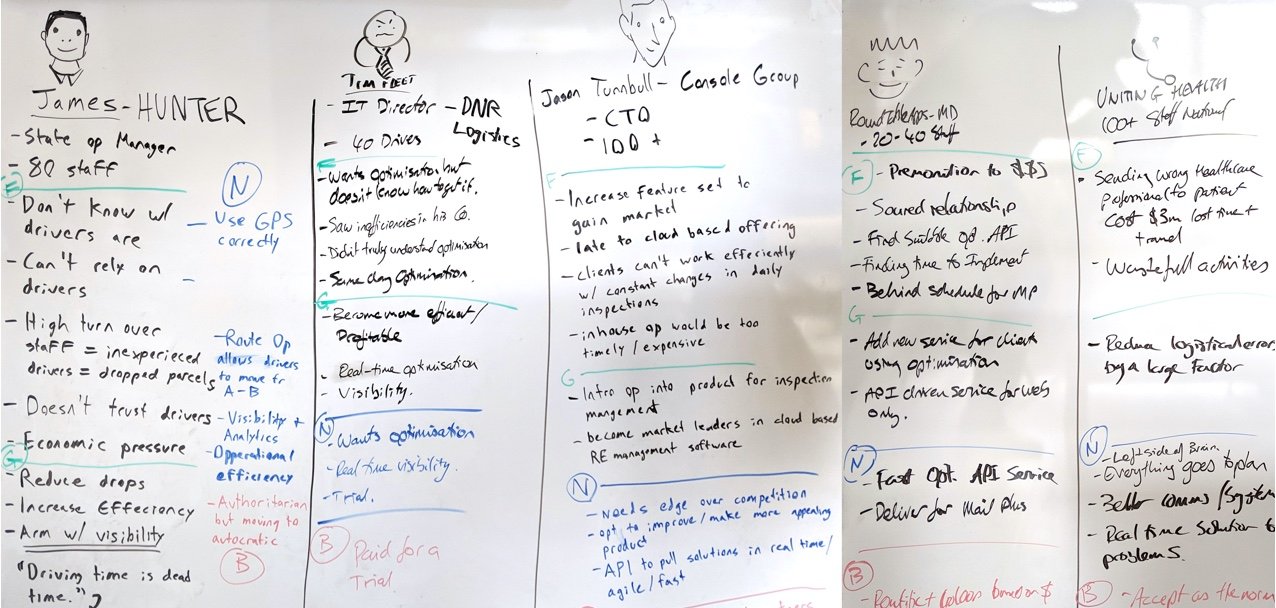 James - HUNTER
- State op Manager
- 80 staff
F
- Don't know w/
drivers are
- Can't rely on
drivers
- High turn over
staff = inexperieced
drivers = dropped parcels
- Doesn't trust drivers
- Economic pressure
G
- Reduce drops
- Increase Effeciency
- Arm w/ visibility
"Driving time is dead
time."
N
- Use GPS
correctly
-
- Route Op
allows drivers
to move fr
A-B
- Visibility +
Analytics
- Opperational
efficiency
- Authoritarian
but moving to
autocratic
B
TIM FLEET
- IT Director - DNR
Logistics
- 40 Drives
F
- Wants optimisation but
doesn't know how to get it.
- Saw inefficiencies in his Co.
- Didn't truly understand optimisation
- Same day optimisation.
G
- Become more efficient/
Profitable
- Real-time optimisation
- Visibility.
N
- Wants optimisation
- Real time visibility.
- Trial.
B
Paid for a
Trial
Jason Turnbull - Console Group
- CTO
- 100 +
F
- Increase feature set to
gain market
- late to cloud based offering
- clients can't work effeciently
w/ constant changes in daily
inspections
- inhouse op would be too
timely / expensive
G
- Intro op into product for inspection
mangement
- become market leaders in cloud based
RE management software
N
- Needs edge over competition
- opt to improve / make more appealing
product
- API to pull solutions in real time /
agile / fast
- MD
- 20-40 Staff
F
- Premonition to $$$
- Soured relationship
- Find Suitable opt. API
- Finding time to Implement
- Behind schedule for MP
G
- Add new service for clients
using optimisation
- API driven service for web
only.
N
- Fast Opt. API Service
- Deliver for Mail Plus
B
UNITING HEALTH
100+ Staff National
F
- Sending wrong Healthcare
professional to patient
cost $3m lost time +
travel
- Wastefull activities
- Reduce logistical errors
by a large factor
N
- Left side of Brain.
- Everything goes to plan
- Better comms / System
- Real time Solution to
problems.
B
- Accept as the norm